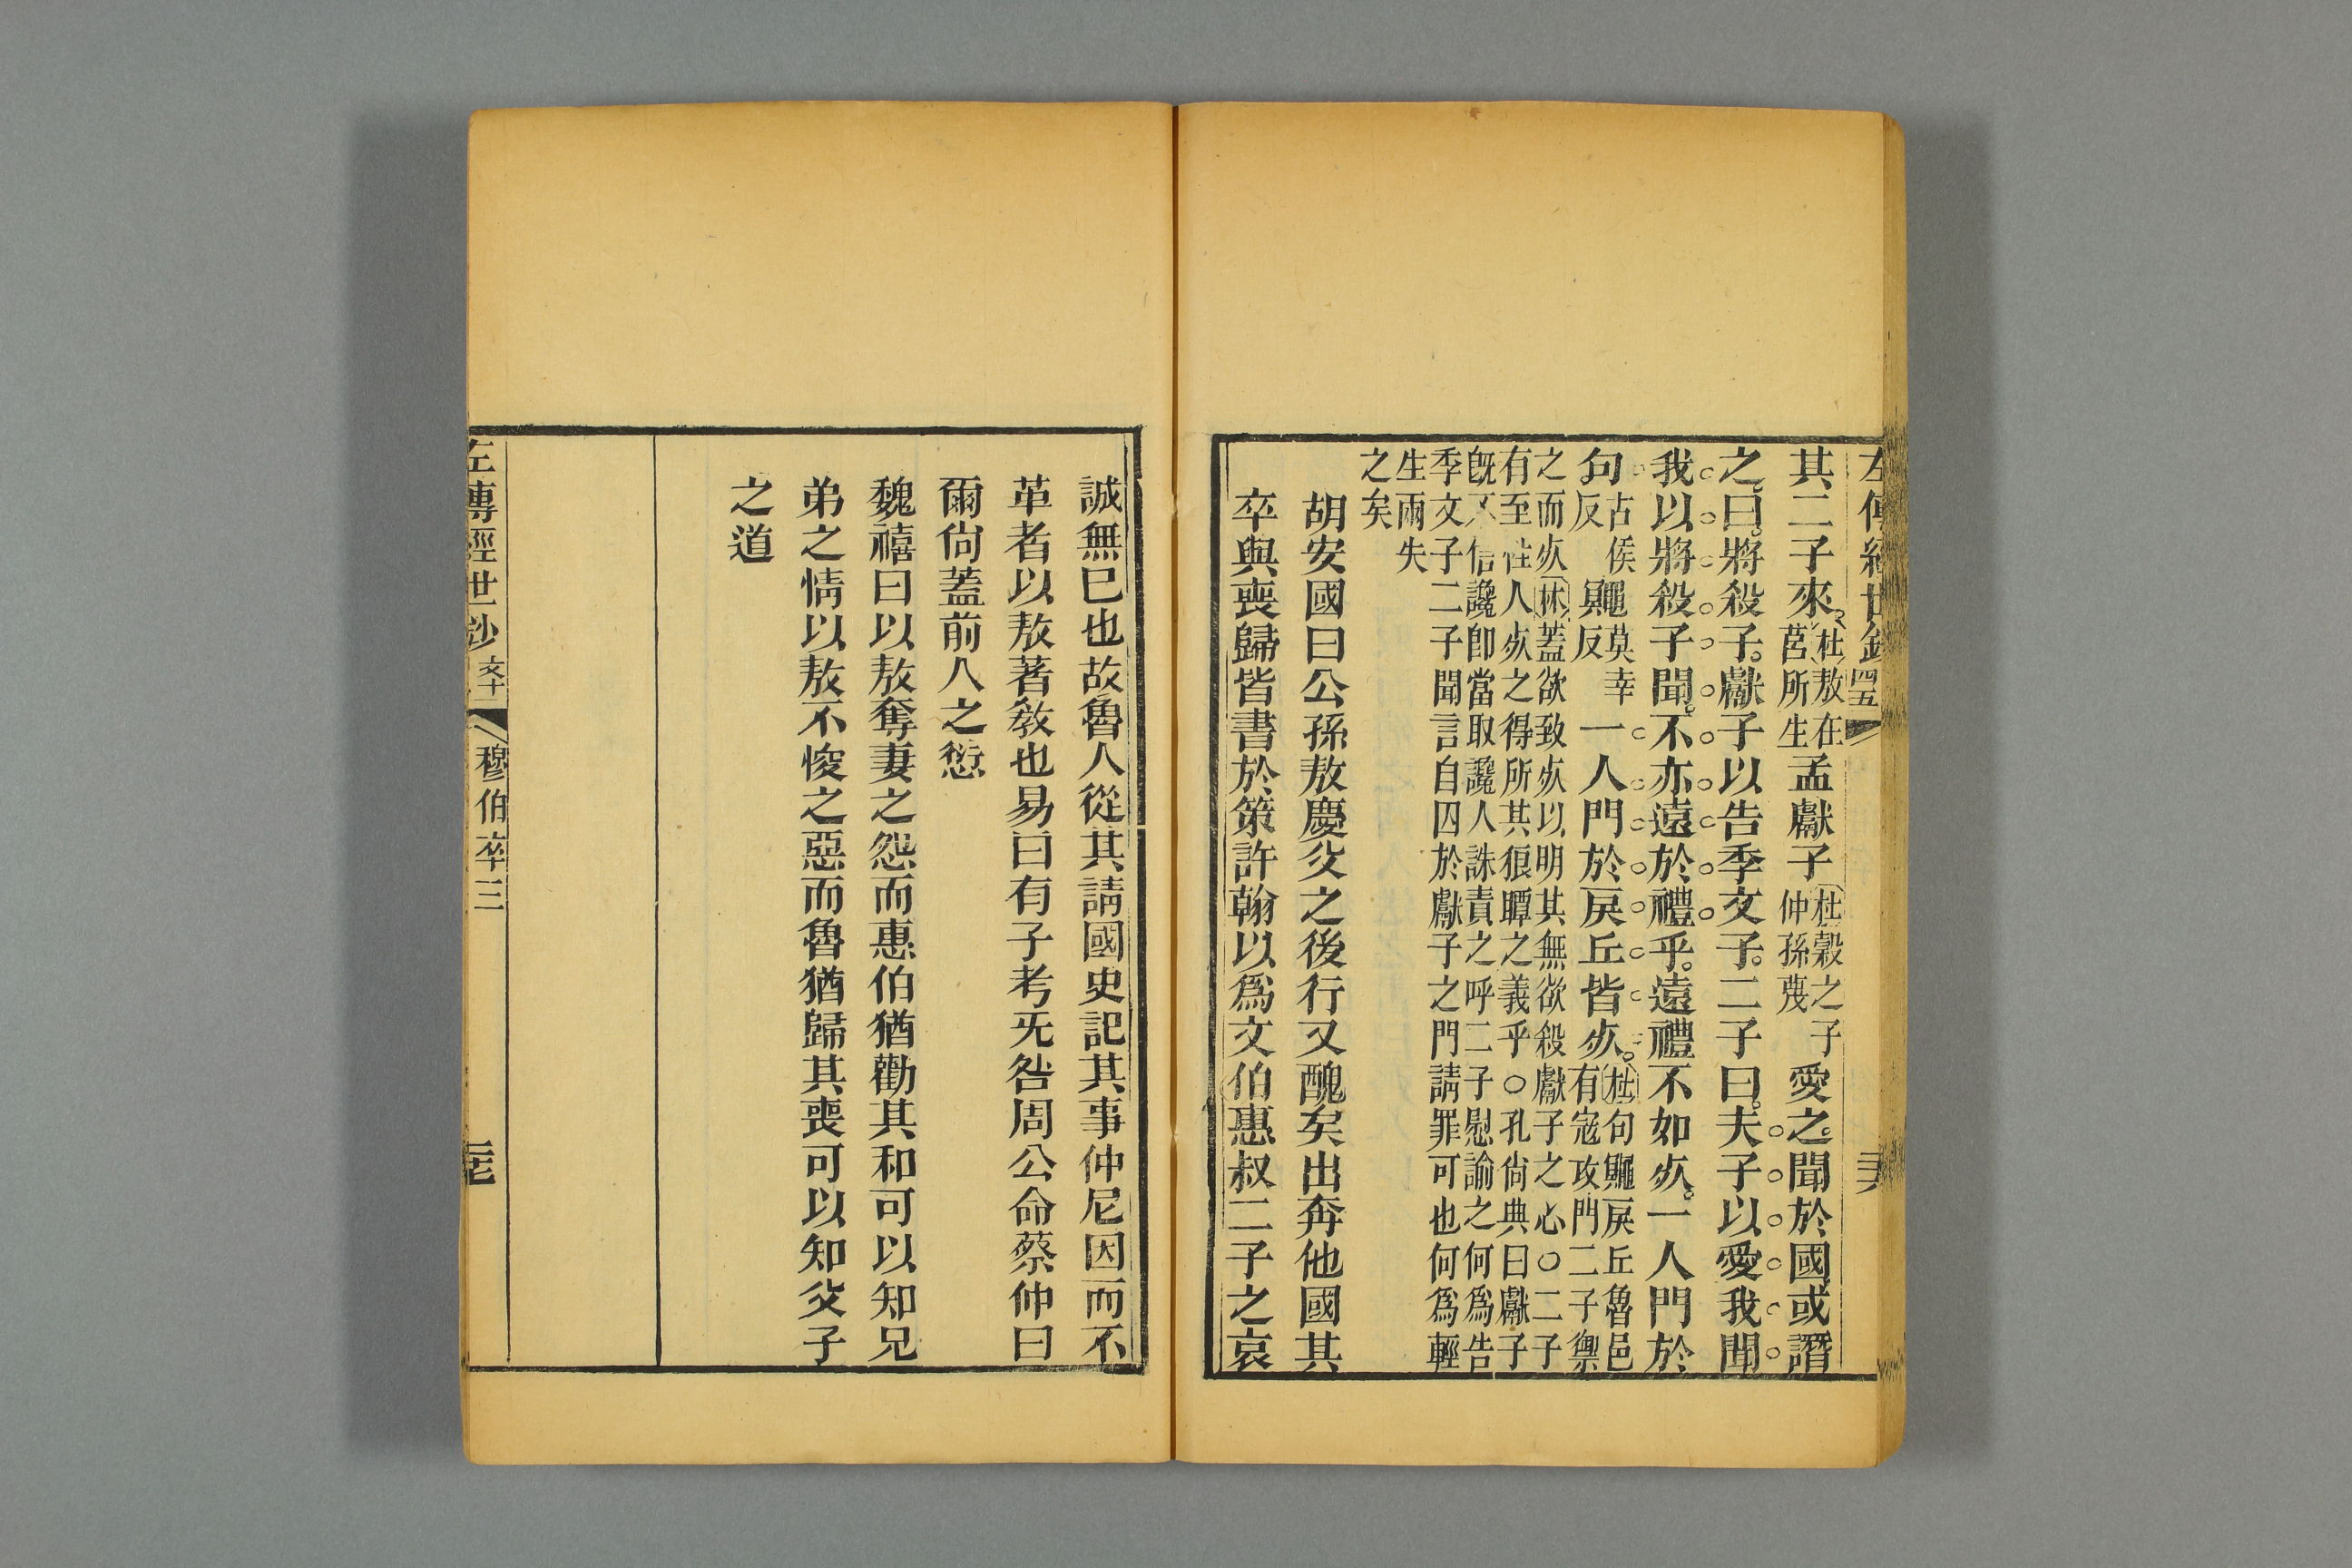 左傳經世鈔
其二子來杜敖在莒所生孟獻子杜穀之子仲孫蔑愛之聞於國或譖
之曰將殺子獻子以告季文子二子曰夫子以愛我聞
我以將殺子聞不亦遠於禮乎遠禮不如死一人門於
句古侯反鼆莫幸反一人門於戾丘皆死杜句鼆戾丘魯邑有寇攻門二子禦
之而死林蓋欲致死以明其無欲殺獻子之心○二子
有至性人死之得所其狠瞫之義乎○孔尚典曰獻子
旣不信讒卽當取讒人誅責之呼二子慰諭之何爲告
季文子二子聞言自囚於獻子之門請罪可也何爲輕
生兩失
之矣
胡安國曰公孫敖慶父之後行又醜矣出奔他國其
卒與喪歸皆書於策許翰以爲文伯惠叔二子之哀
誠無已也故魯人從其請國史記其事仲尼因而不
革者以敖著教也易曰有子考旡咎周公命蔡仲曰
爾尙蓋前人之愆
魏禧曰以敖奪妻之怨而惠伯猶勸其和可以知兄
弟之情以敖不悛之惡而魯猶歸其喪可以知父子
之道
左傳經世鈔 穆伯卒三